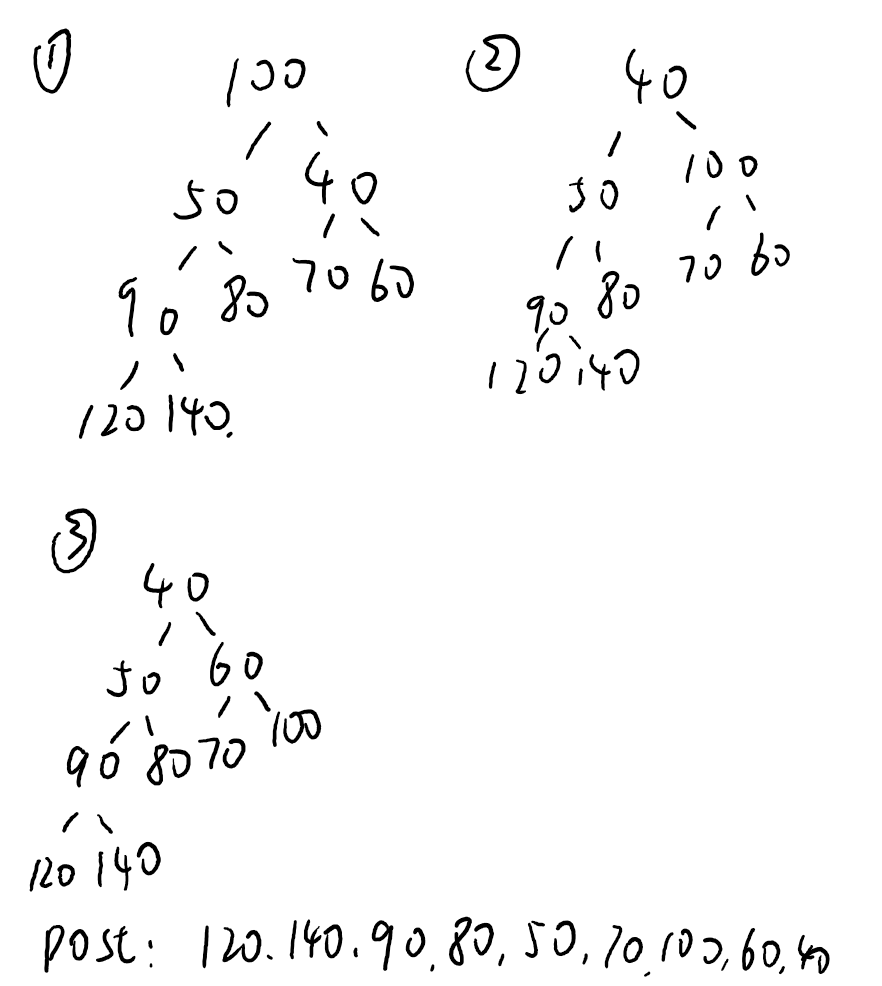 ① 100
50 40
90 80 70 60
120 140.
② 40
50 100
90 80 70 60
120 140
③
40
50 60
90 80 70 100
120 140
post: 120. 140. 90. 80, 50, 70. 100, 60, 40